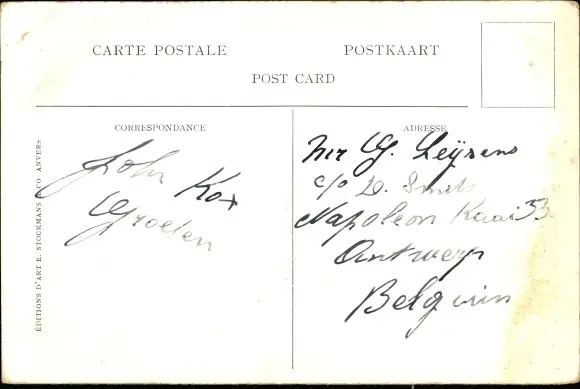 CARTE POSTALE
POSTKAART
POST CARD
CORRESPONDANCE
John Kox
Groeten
ADRESSE
Mr G. Leÿsens
c/o D. Smets
Napoleon Kaai 53
Antwerp
Belgium
ÉDITIONS D'ART E. STOCKMANS & CO ANVERS